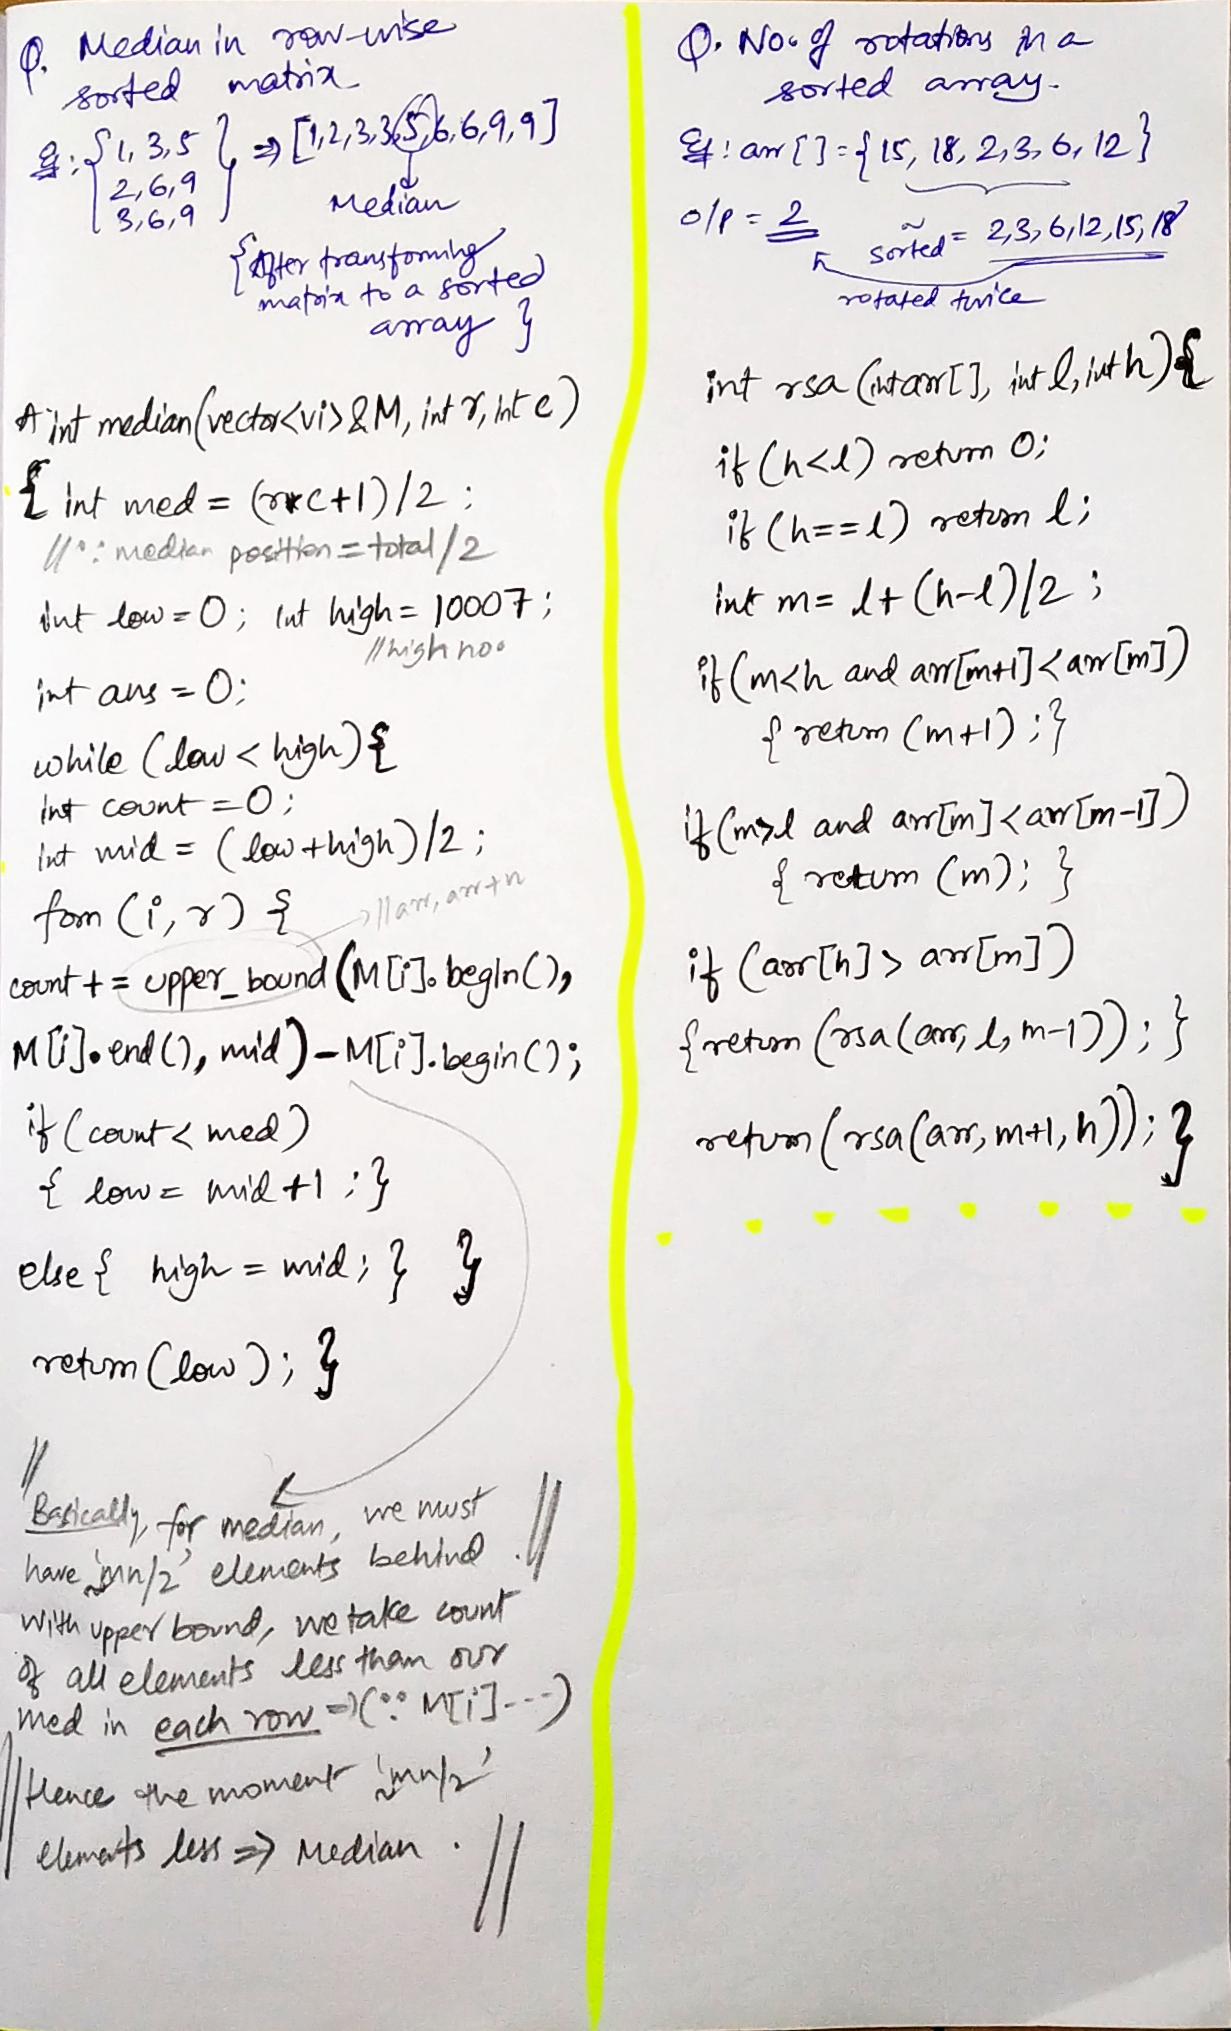 Q. Median in row-wise
sorted matrix
Eg: { 1, 3, 5 } ⇒ [1,2,3,3,5,6,6,9,9]
2, 6, 9
3, 6, 9
Median
{After transforming
matrix to a sorted
array }
int median(vector<vi> &M, int r, int c)
{ int med = (r*c+1)/2 ;
// ∵ median position = total/2
int low = 0; int high = 10007;
// high no.
int ans = 0;
while (low < high) {
int count = 0;
int mid = (low+high)/2;
forn (i, r) {
// arr, arr+n
count += upper_bound (M[i].begin(),
M[i].end(), mid) - M[i].begin();
if (count < med)
{ low = mid+1 ; }
else { high = mid; } }
return (low); }
//
Basically, for median, we must
have 'mn/2' elements behind. //
With upper bound, we take count
of all elements less than our
med in each row ⇒ (∵ M[i]---)
// Hence the moment 'mn/2'
elements less ⇒ Median. //
Q. No. of rotations in a
sorted array.
Eg: arr[] = {15, 18, 2, 3, 6, 12}
o/p = 2
sorted = 2,3,6,12,15,18
rotated twice
int rsa (int arr[], int l, int h) {
if (h<l) return 0;
if (h==l) return l;
int m = l+(h-l)/2 ;
if (m<h and arr[m+1]<arr[m])
{ return (m+1) ; }
if (m>l and arr[m]<arr[m-1])
{ return (m); }
if (arr[h] > arr[m])
{return (rsa(arr, l, m-1)) ; }
return (rsa(arr, m+1, h)); }